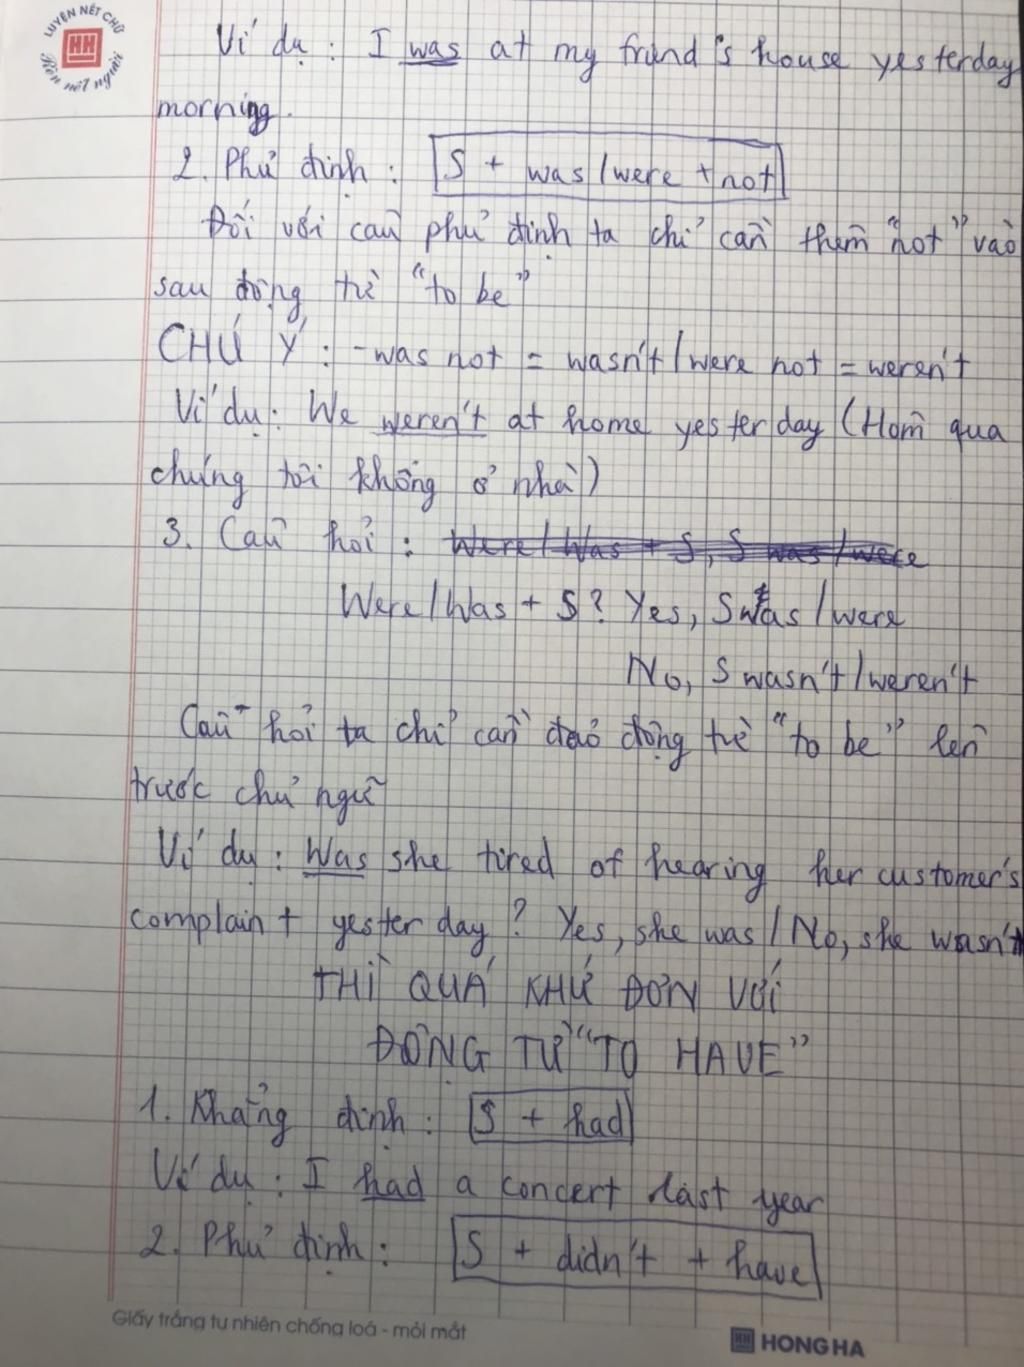 LUYỆN NÉT CHỮ
HH
Rèn nết người
Ví dụ : I was at my friend's house yesterday
morning.
2. Phủ định : S + was/were + not
Đối với câu phủ định ta chỉ cần thêm "not" vào
sau động từ "to be"
CHÚ Ý : - was not = wasn't/were not = weren't
Ví dụ : We weren't at home yesterday (Hôm qua
chúng tôi không ở nhà)
3. Câu hỏi : Were/Was + S, S was/were
Were/Was + S? Yes, S was/were
No, S wasn't/weren't
Câu hỏi ta chỉ cần đảo động từ "to be" lên
trước chủ ngữ
Ví dụ : Was she tired of hearing her customer's
complaint yesterday ? Yes, she was/No, she wasn't
THÌ QUÁ KHỨ ĐƠN VỚI
ĐỘNG TỪ "TO HAVE"
1. Khẳng định : S + had
Ví dụ : I had a concert last year
2. Phủ định : S + didn't + have
Giấy trắng tự nhiên chống loá - mỏi mắt
HH HONG HA